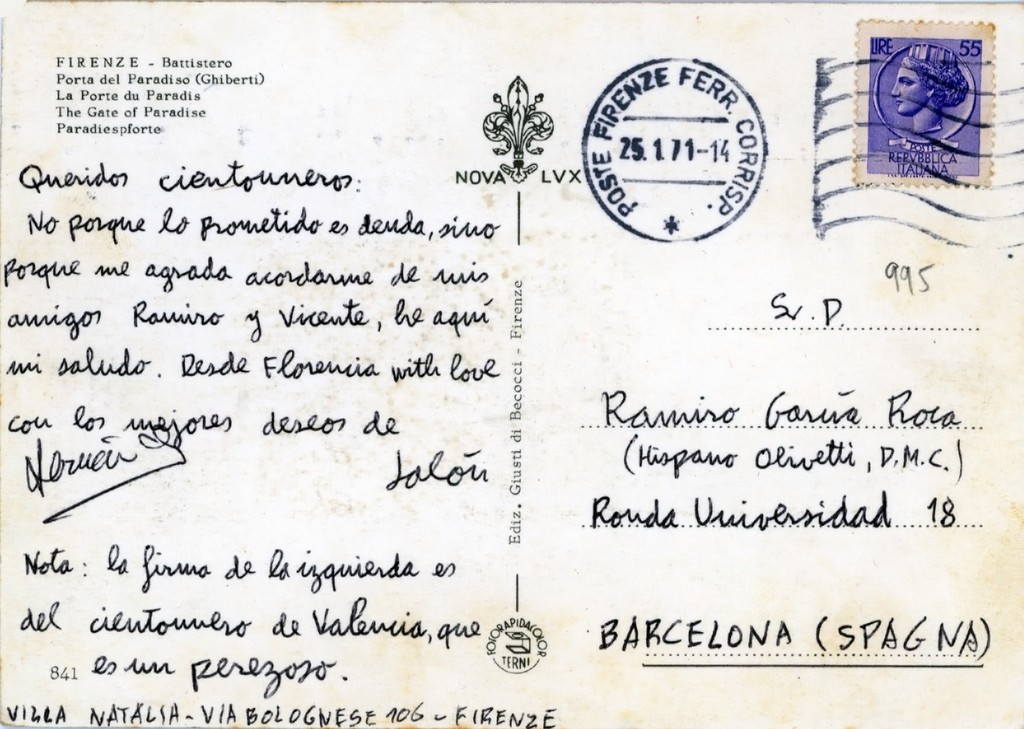 FIRENZE - Battistero
Porta del Paradiso (Ghiberti)
La Porte du Paradis
The Gate of Paradise
Paradiespforte
Queridos cientouneros:
No porque lo prometido es deuda, sino
porque me agrada acordarme de mis
amigos Ramiro y Vicente, he aquí
mi saludo. Desde Florencia with love
con los mejores deseos de
Jolón
Nota: la firma de la izquierda es
del cientounero de Valencia, que
841 es un perezoso.
VILLA NATALIA - VIA BOLOGNESE 106 - FIRENZE
NOVA LVX
Ediz. Giusti di Becocci - Firenze
FOTORAPIDACOLOR
TERNI
POSTE FIRENZE FERR. CORRISP.
25.1.71-14
*
LIRE 55
POSTE
REPVBBLICA
ITALIANA
995
Sr. D.
Ramiro García Roca
(Hispano Olivetti, D.M.C.)
Ronda Universidad 18
BARCELONA (SPAGNA)